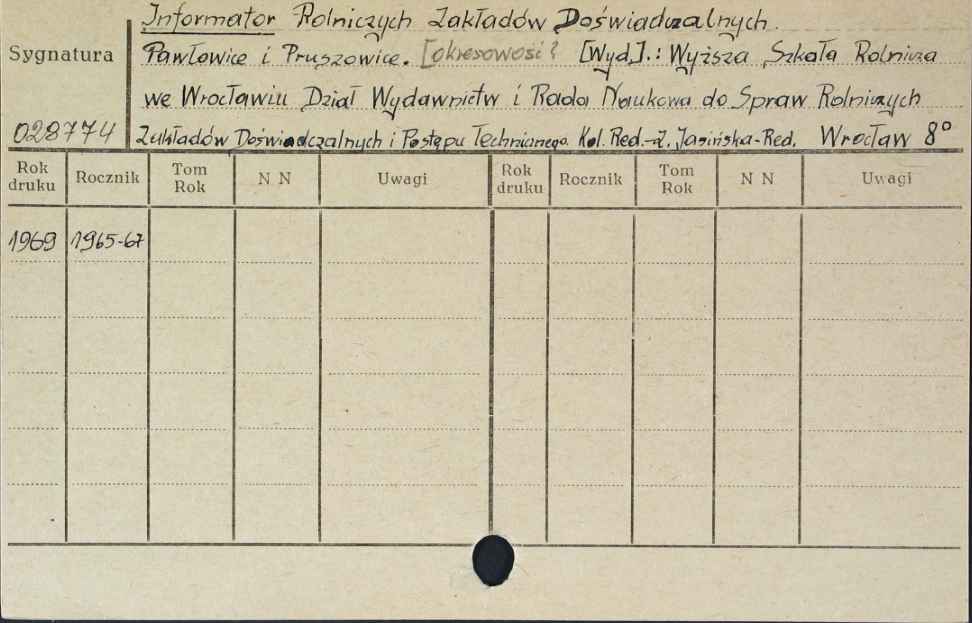 Informator Rolniczych Zakładów Doświadczalnych.
Sygnatura
Pawłowice i Pruszowice. [okresowość? [Wyd.].: Wyższa Szkoła Rolnicza
we Wrocławiu Dział Wydawnictw i Rada Naukowa do Spraw Rolniczych
028774
Zakładów Doświadczalnych i Postępu Technicznego. Kol. Red.-Z. Jasińska-Red. Wrocław 8°
Rok druku Rocznik Tom Rok N N Uwagi Rok druku Rocznik Tom Rok N N Uwagi
1969 1965-67